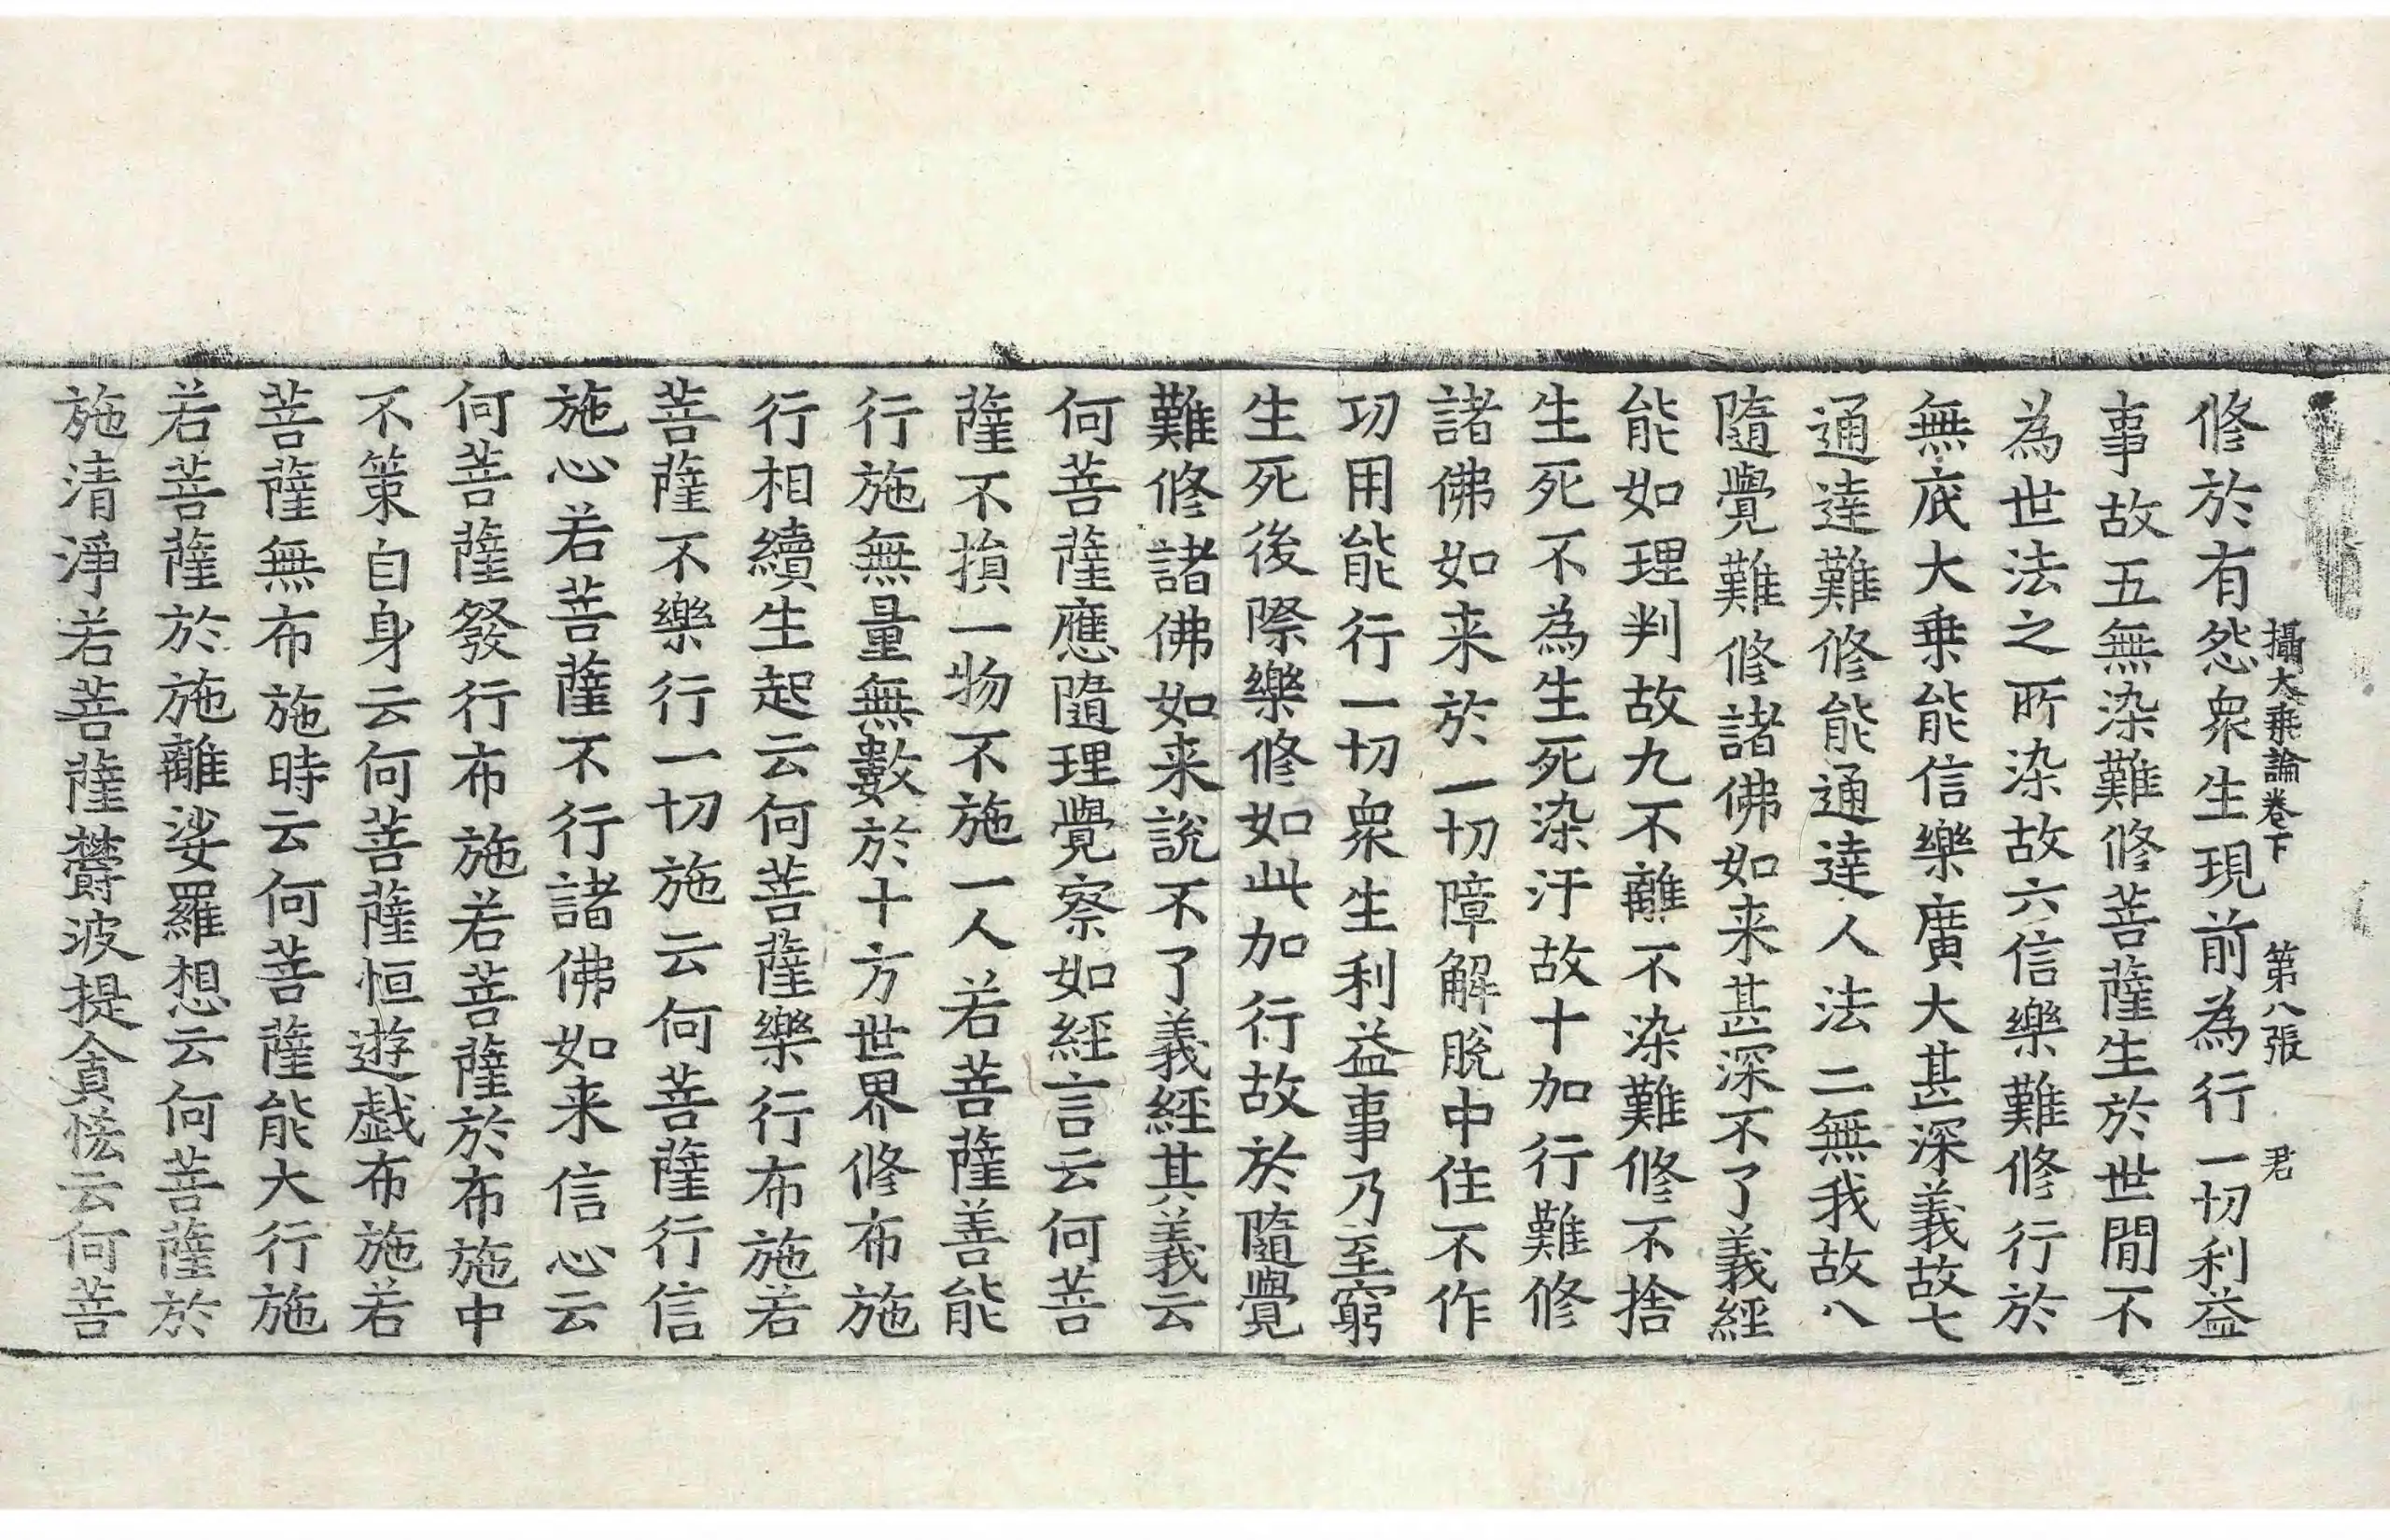 攝大乗論卷下 第八張 君
修於有怨衆生現前為行一切利益
事故五無染難修菩薩生於世間不
為世法之所染故六信樂難修行於
無底大乗能信樂廣大甚深義故七
通達難修能通達人法二無我故八
隨覺難修諸佛如来甚深不了義經
能如理判故九不離不染難修不捨
生死不為生死染汙故十加行難修
諸佛如来於一切障解脫中住不作
功用能行一切衆生利益事乃至窮
生死後際樂修如此加行故於隨覺
難修諸佛如来說不了義經其義云
何菩薩應隨理覺察如經言云何菩
薩不損一物不施一人若菩薩善能
行施無量無數於十方世界修布施
行相續生起云何菩薩樂行布施若
菩薩不樂行一切施云何菩薩行信
施心若菩薩不行諸佛如来信心云
何菩薩發行布施若菩薩於布施中
不策自身云何菩薩恒遊戱布施若
菩薩無布施時云何菩薩能大行施
若菩薩於施離娑羅想云何菩薩於
施清淨若菩薩欝波提貪恡云何菩